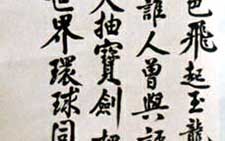 色飛起玉龍
誰人曾與評
天抽寶劍把
世界環球同